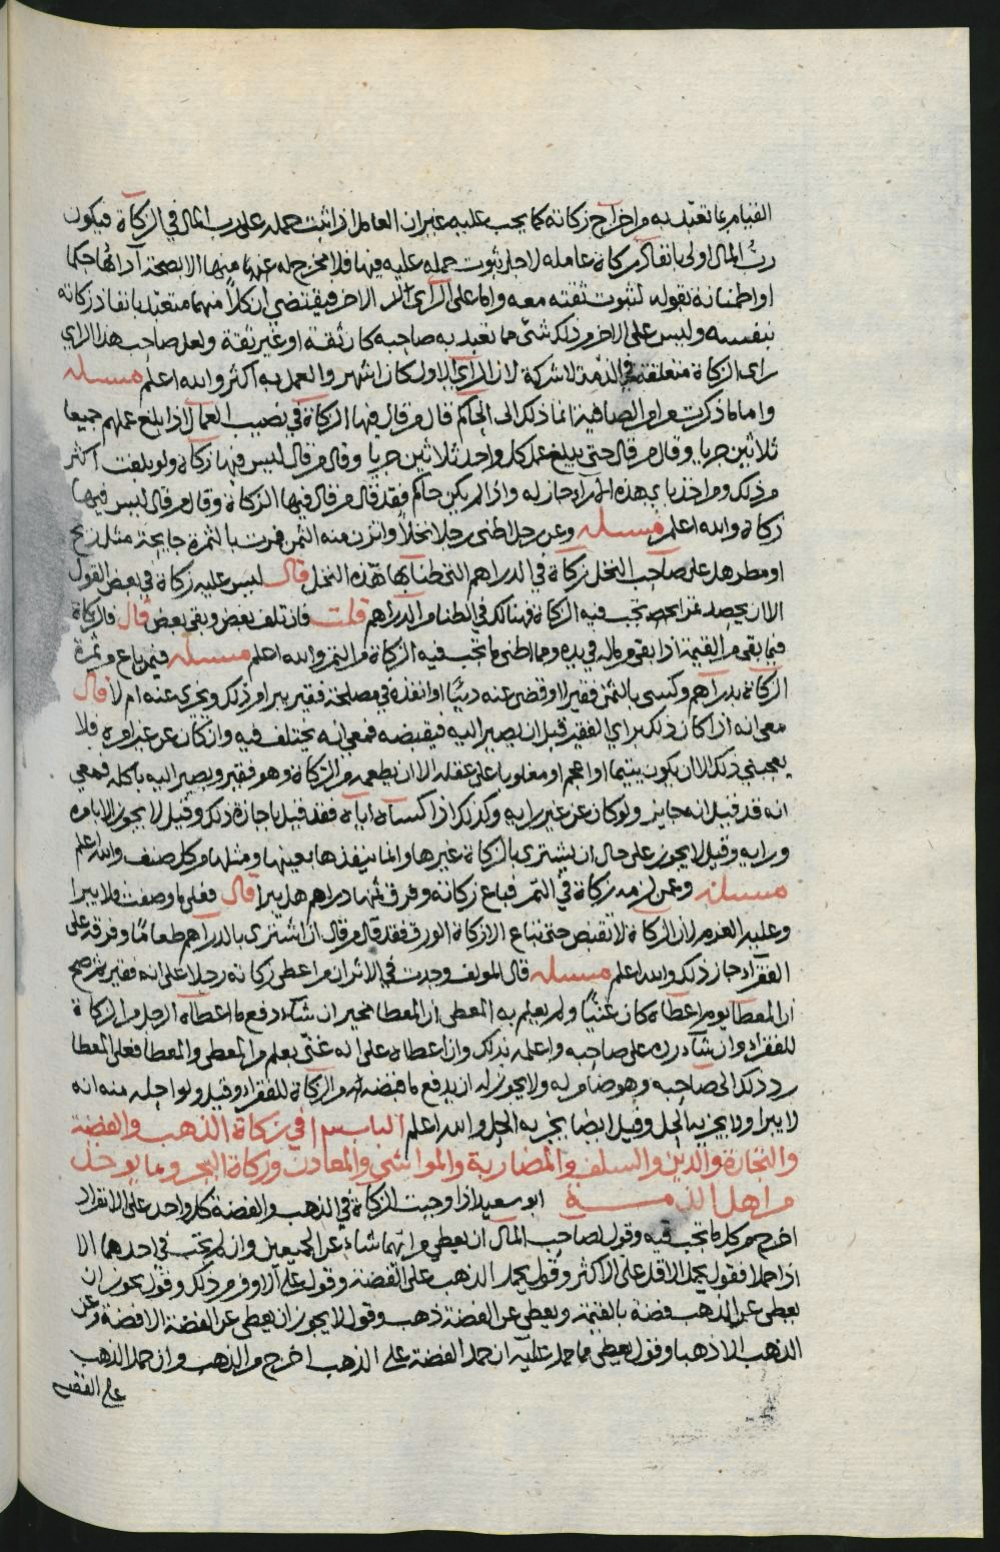 القيام بما تعبد به من اخراج زكاته كما يجب عليه غير ان العامل اذا ثبت حمله على رب المال في الزكاة فيكون
رب المال اولى بانفاذ زكاة عامله لاجل ثبوت حمله عليه فيها فلا مخرج له عندنا منها الا بصحة ادائها حكما
او اطمئنانة بقوله لثبوت ثقته معه واما على الراي الاخر فيقتضي ان كلا منهما متعبد بانفاذ زكاته
بنفسه وليس على الاخر من ذلك شيء مما تعبد به صاحبه كان ثقة او غير ثقة ولعل صاحب هذا الراي
راى الزكاة متعلقة في الذمة لا شركة لان الراي الاول كان اشهر والعمل به اكثر والله اعلم مسئله
واما ما ذكرت من الصافية انما ذلك الى الحاكم قال من قال فيها الزكاة في نصيب العمال اذا بلغ عملهم جميعا
ثلاثين جريا وقال من قال حتى يبلغ عمل كل واحد ثلاثين جريا وقال من قال ليس فيها زكاة ولو بلغت اكثر
من ذلك ومن اخذ باي هذه الاراء جاز له واذا لم يكن حاكم فقد قال من قال فيها الزكاة وقال من قال ليس فيها
زكاة والله اعلم مسئله وعن رجل اطنى رجلا نخلا واتزن منه الثمن فمرت بالثمرة جايحة مثل ريح
او مطر هل على صاحب النخل زكاة في الدراهم التي طنا بها هذه النخل قال ليس عليه زكاة في بعض القول
الا ان يحصد تمرا يحصد تجب فيه الزكاة فهنالك في الطنا من الدراهم قلت فان تلف بعض وبقى بعض قال فالزكاة
فيما بقى من القيمة اذا بقى من ماله في يده وما اطنى ما تجب فيه الزكاة من التمر والله اعلم مسئله فيمن باع من ثمرة
الزكاة بدراهم وكسى بالثمن فقيرا او قضى عنه دينا او انفذه في مصلحة فقير يبرا من ذلك ويجزى عنه ام لا قال
معي انه اذا كان ذلك براي الفقير قبل ان يصير اليه فيقبضه فمعي انه يختلف فيه وان كان عن غير امره فلا
يعجبني ذلك الا ان يكون يتيما او اعجم او مغلوبا على عقله الا ان يطعمه من الزكاة وهو فقير ويصير اليه باكله فمعي
انه قد قيل انه جايز ولو كان عن غير رايه وكذلك اذا كساه اياه فقد قيل باجازة ذلك وقيل لا يجوز الا بامره
ورايه وقيل لا يجوز على حال ان يشترى بالزكاة غيرها وانما ينفذها بعينها ومثلها من كل صنف والله اعلم
مسئله وعمن لزمه زكاة في التمر فباع زكاته وفرق ثمنها دراهم هل يبرا قال فعلى ما وصفت فلا يبرا
وعليه الغرم لان الزكاة لا تقبض حتى تباع الا زكاة الورق فقد قال من قال ان اشترى بالدراهم طعاما وفرقه على
الفقراء جاز ذلك والله اعلم مسئله قال المولف وجدت في الاثر ان من اعطى زكاته رجلا على انه فقير ثم صح
ان المعطا يوم اعطاه كان غنيا ولم يعلم به المعطي ان المعطا مخير ان شاء دفع ما اعطاه الرجل من الزكاة
للفقراء وان شاء رده على صاحبه واعلمه بذلك وان اعطاه على انه غني بعلم من المعطي والمعطا فعلى المعطا
رد ذلك الى صاحبه وهو ضامن له ولا يجوز له ان يدفع ما قبضه من الزكاة للفقراء وقيل ولو احله منه انه
لا يبرا ولا يجزيه الحل وقيل ايضا يجزيه الحل والله اعلم الباب في زكاة الذهب والفضة
والتجارة والدين والسلف والمضاربة والمواشي والمعادن وزكاة البحر وما يوخذ
من اهل الذمة ابو سعيد اذا وجبت الزكاة في الذهب والفضة كل واحد على الانفراد
اخرج من كل ما تجب فيه وقول لصاحب المال ان يعطي من ايهما شاء عن الجميعين وان لم تجب في احدهما الا
اذا حملا فقول يحمل الاقل على الاكثر وقول يحمل الذهب على الفضة وقول على الاوفر من ذلك وقول يجوز ان
يعطى عن الذهب فضة بالقيمة ويعطى عن الفضة ذهب وقول لا يجوز ان يعطى عن الفضة الا فضة وعن
الذهب الا ذهبا وقول يعطى مما حمل عليه ان حمل الفضة على الذهب اخرج من الذهب وان حمل الذهب
على الفضة